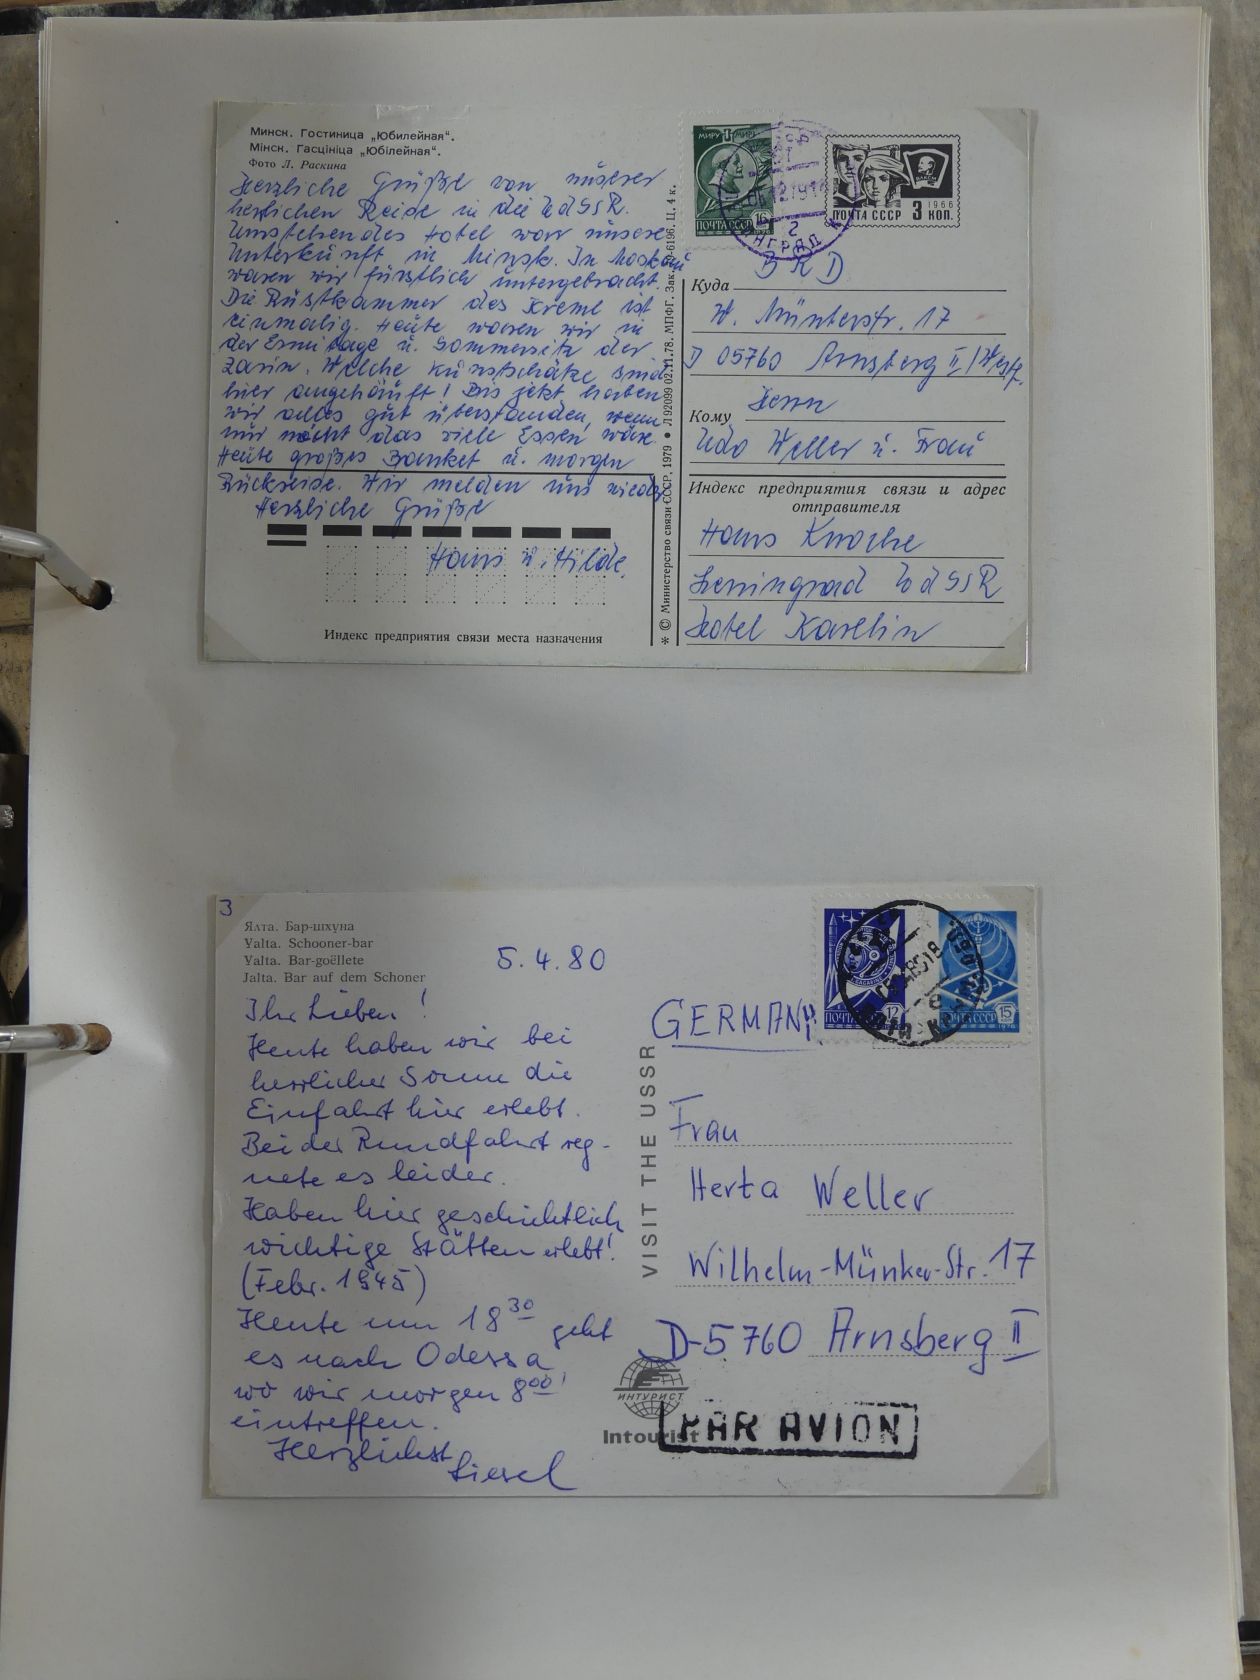 Минск. Гостиница „Юбилейная“.
Мінск. Гасцініца „Юбілейная“.
Фото Л. Раскина
Herzliche Grüße von unserer
herrlichen Reise in die UdSSR.
Umstehendes Hotel war unsere
Unterkunft in Minsk. In Moskau
waren wir fürstlich untergebracht.
Die Rüstkammer des Kreml ist
einmalig. Heute waren wir in
der Ermitage u. Sommersitz der
Zarin. Welche Kunstschätze sind
hier angehäuft! Bis jetzt haben
wir alles gut überstanden, wenn
nur nicht das viele Essen wäre.
Heute großes Banket u. morgen
Rückreise. Wir melden uns wieder
Herzliche Grüße
Hans u. Hilde.
Индекс предприятия связи места назначения
* © Министерство связи СССР, 1979 ● Л 92099 02.11.78. МПФГ. Зак. 6196. Ц. 4 к.
МИРУ МИР
ПОЧТА СССР 16
ПОЧТА СССР 3 КОП.
1966
ВЛКСМ
BRD
Куда
W. Münkerstr. 17
D 05760 Arnsberg II/Westf.
Herrn
Кому
Udo Weller u. Frau
Индекс предприятия связи и адрес
отправителя
Hans Knoche
Leningrad UdSSR
Hotel Karelin
3
Ялта. Бар-шхуна
Yalta. Schooner-bar
Yalta. Bar-goëllete
Jalta. Bar auf dem Schoner
5.4.80
Ihr Lieben!
Heute haben wir bei
herrlicher Sonne die
Einfahrt hier erlebt.
Bei der Rundfahrt reg-
nete es leider.
Haben hier geschichtlich
wichtige Stätten erlebt!
(Febr. 1945)
Heute um 18 30 geht
es nach Odessa,
wo wir morgen 8 00
eintreffen.
Herzlichst
Liesel
VISIT THE USSR
ПОЧТА 12
ПОЧТА СССР 15
1976
GERMANY
Frau
Herta Weller
Wilhelm-Münker-Str. 17
D-5760 Arnsberg II
ИНТУРИСТ
Intourist
PAR AVION